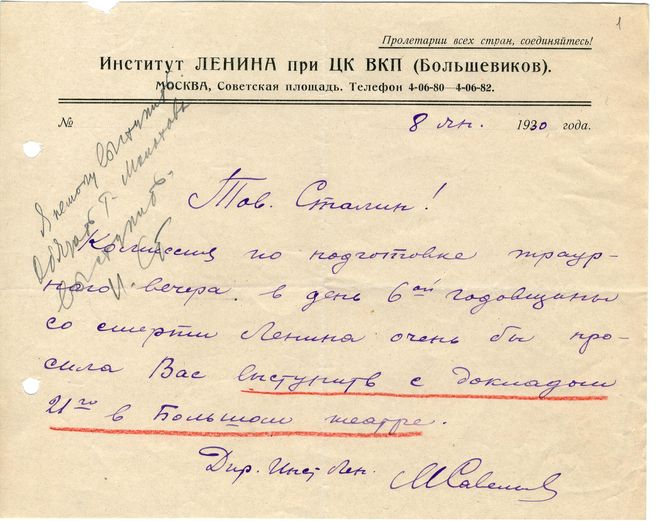 1
Пролетарии всех стран, соединяйтесь!
Институт ЛЕНИНА при ЦК ВКП (Большевиков).
МОСКВА, Советская площадь. Телефон 4-06-80—4-06-82.
№ 8 Ян. 1930 года.
Я не могу выступить
Обязать т. Молотова
выступить.
И. Ст
Тов. Сталин!
Комиссия по подготовке траур-
ного вечера в день 6ой годовщины
со смерти Ленина очень бы про-
сила Вас выступить с докладом
21го в Большом театре.
Дир. Инст Лен.
МСавельев